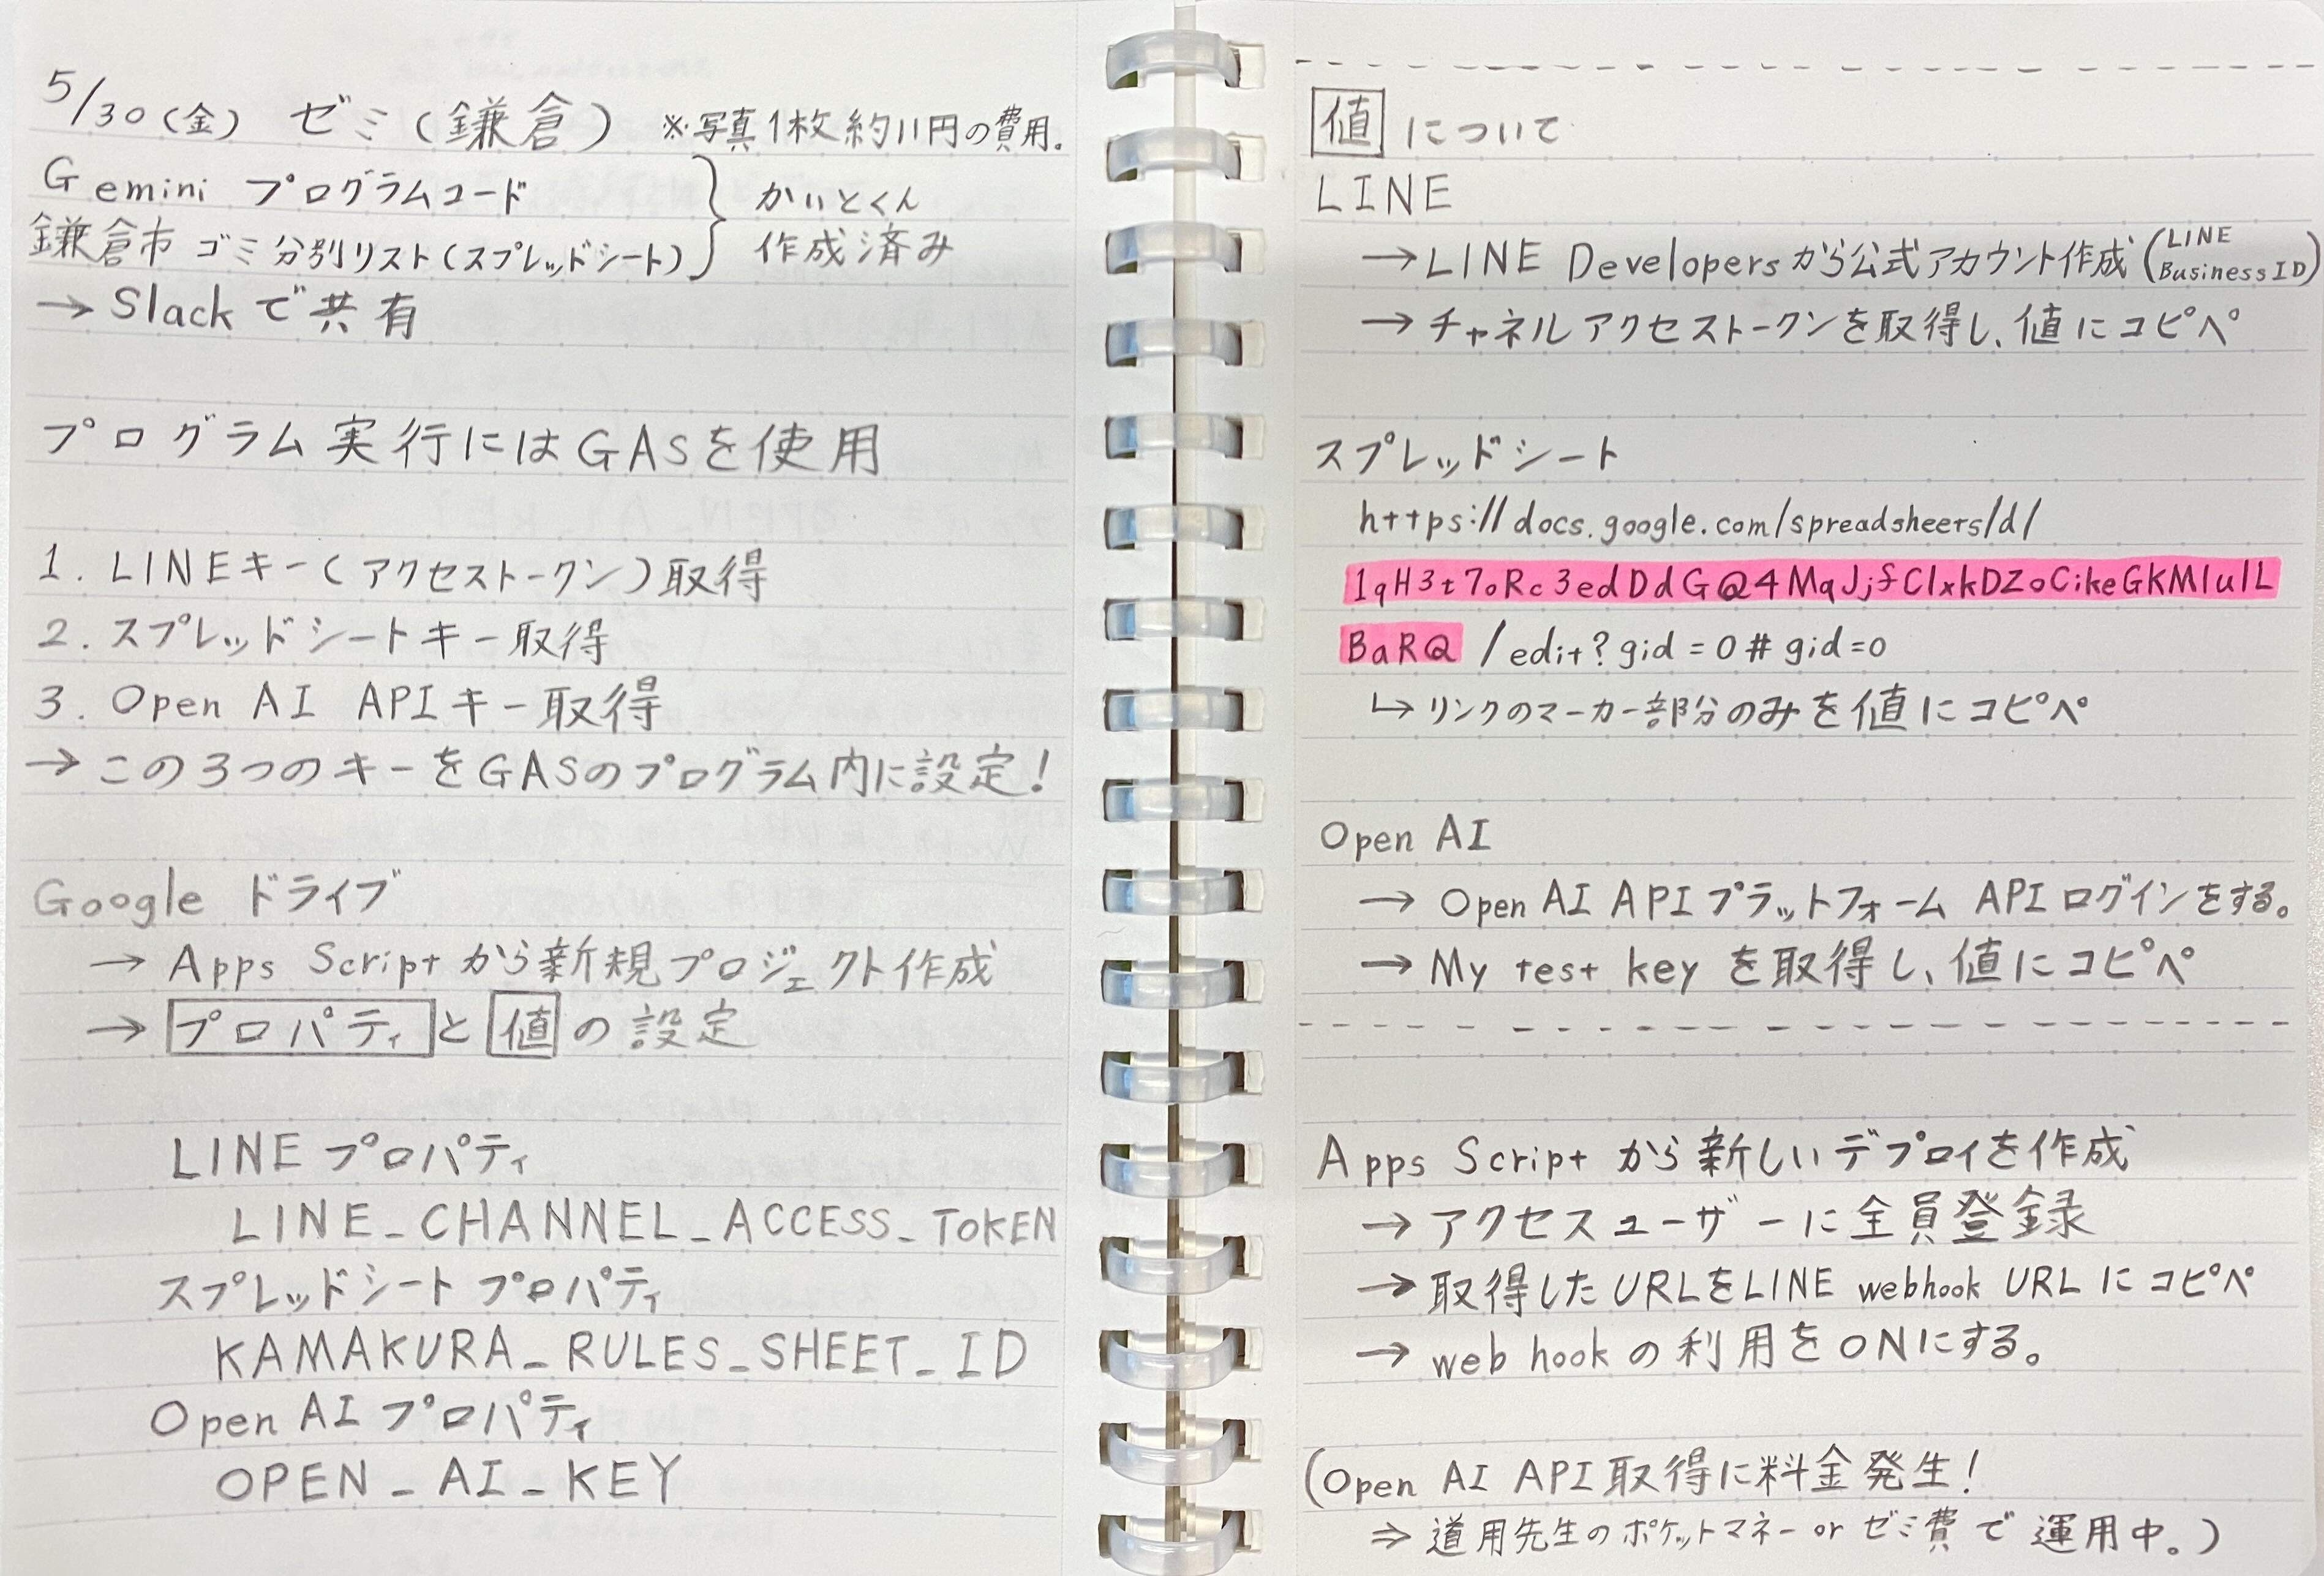 5/30(金) ゼミ(鎌倉) ※写真1枚約11円の費用.
Gemini プログラムコード
鎌倉市 ゴミ分別リスト(スプレッドシート)
かいとくん
作成済み
→ Slackで共有
プログラム実行にはGASを使用
1. LINEキー(アクセストークン)取得
2. スプレッドシートキー取得
3. Open AI APIキー取得
→ この3つのキーをGASのプログラム内に設定!
Google ドライブ
→ Apps Scriptから新規プロジェクト作成
→ プロパティと値の設定
LINE プロパティ
LINE_CHANNEL_ACCESS_TOKEN
スプレッドシート プロパティ
KAMAKURA_RULES_SHEET_ID
Open AI プロパティ
OPEN_AI_KEY
値について
LINE
→LINE Developersから公式アカウント作成(LINE Business ID)
→ チャネルアクセストークンを取得し、値にコピペ
スプレッドシート
https://docs.google.com/spreadsheets/d/
1qH3t7oRc3edDdGQ4MqJjfClxkDZoCikeGKMlulL
BaRQ /edit?gid=0#gid=0
↳ リンクのマーカー部分のみを値にコピペ
Open AI
→ Open AI APIプラットフォーム APIログインをする。
→ My test key を取得し、値にコピペ
Apps Script から新しいデプロイを作成
→ アクセスユーザーに全員登録
→ 取得したURLをLINE webhook URLにコピペ
→ web hookの利用をONにする。
(Open AI API取得に料金発生!
⇒ 道用先生のポケットマネーorゼミ費で運用中。)